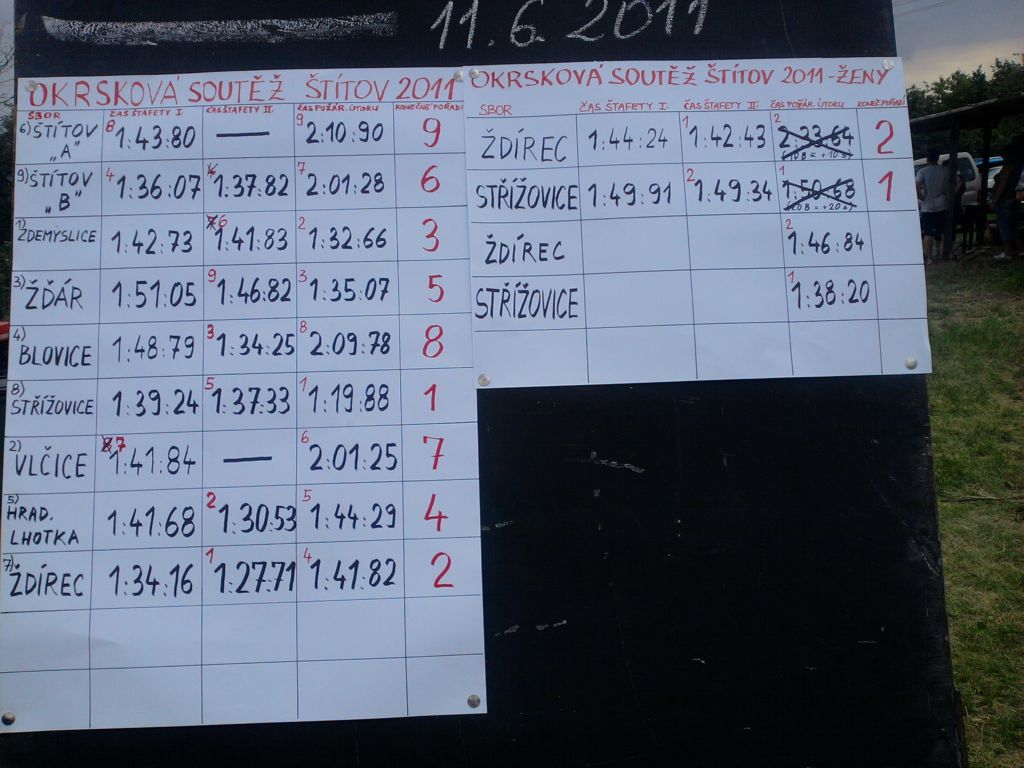 11.6.2011
OKRSKOVÁ SOUTĚŽ ŠTÍTOV 2011
SBOR ČAS ŠTAFETY I. ČAS ŠTAFETY II. ČAS POŽÁR. ÚTOKU KONEČNÉ POŘADÍ
6) ŠTÍTOV „A" 8 1:43:80 — 9 2:10:90 9
9) ŠTÍTOV „B" 4 1:36:07 4 1:37:82 7 2:01:28 6
1) ZDEMYSLICE 1:42:73 7 6 1:41:83 2 1:32:66 3
3) ŽĎÁR 1:51:05 9 1:46:82 3 1:35:07 5
4) BLOVICE 1:48:79 3 1:34:25 8 2:09:78 8
8) STŘÍŽOVICE 1:39:24 5 1:37:33 1 1:19:88 1
2) VLČICE 8 7 1:41:84 — 6 2:01:25 7
5) HRAD. LHOTKA 1:41:68 2 1:30:53 5 1:44:29 4
7) ŽDÍREC 1:34:16 1 1:27:71 4 1:41:82 2
OKRSKOVÁ SOUTĚŽ ŠTÍTOV 2011 - ŽENY
SBOR ČAS ŠTAFETY I. ČAS ŠTAFETY II. ČAS POŽÁR. ÚTOKU KONEČ. POŘADÍ
ŽDÍREC 1:44:24 1 1:42:43 2 2:33:64 (10 B = +10 s) 2
STŘÍŽOVICE 1:49:91 2 1:49:34 1 1:50:68 (20 B = +20 s) 1
ŽDÍREC 2 1:46:84
STŘÍŽOVICE 1 1:38:20